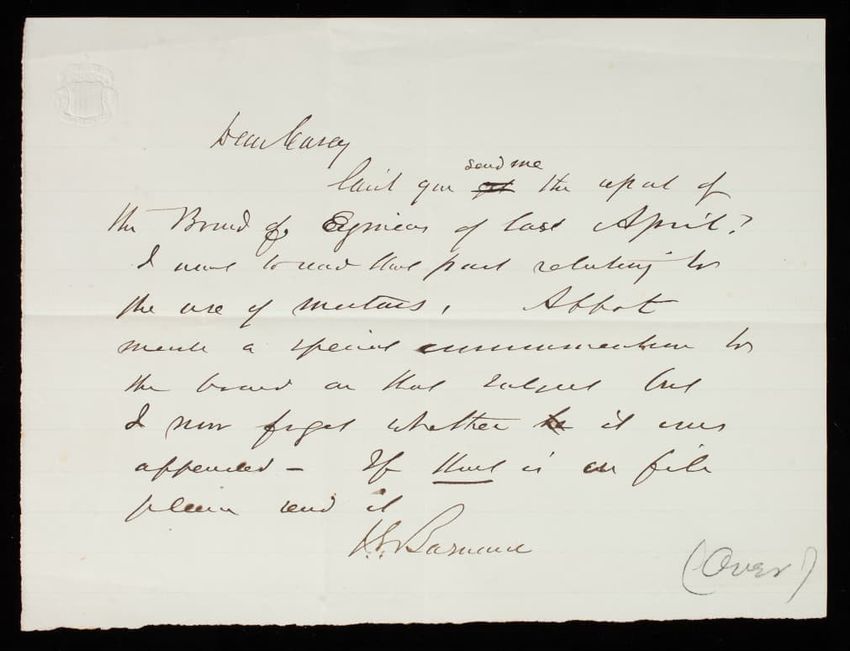 Dear Casey
send me
Can't you get the report of
the Board of Engineers of last April?
I want to read that part relating to
the use of mortars. Abbot
made a special communication to
the board on that subject but
I now forget whether it was
appended - If that is on file
please send it
J.G. Barnard
(Over)